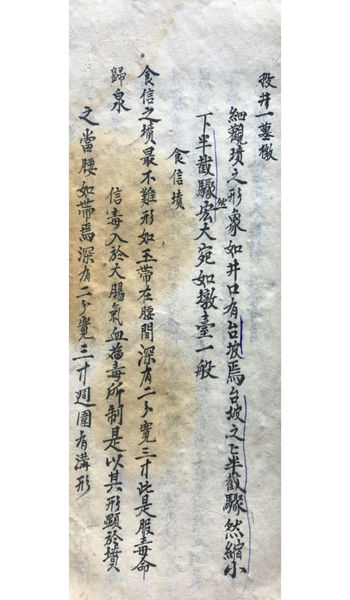 投井一墓檄
細觀墳之形象如井口有台坡焉台坡之上半截驟然縮小
下半截驟然宏大宛如墩臺一般
食信墳
食信之墳最不難形如玉帶在腰間深有二分寬三寸此是服毒命
歸泉
信毒入於大腸氣血為毒所制是以其形顯於墳
之當腰如帶焉深有二分寬三寸週圍有溝形